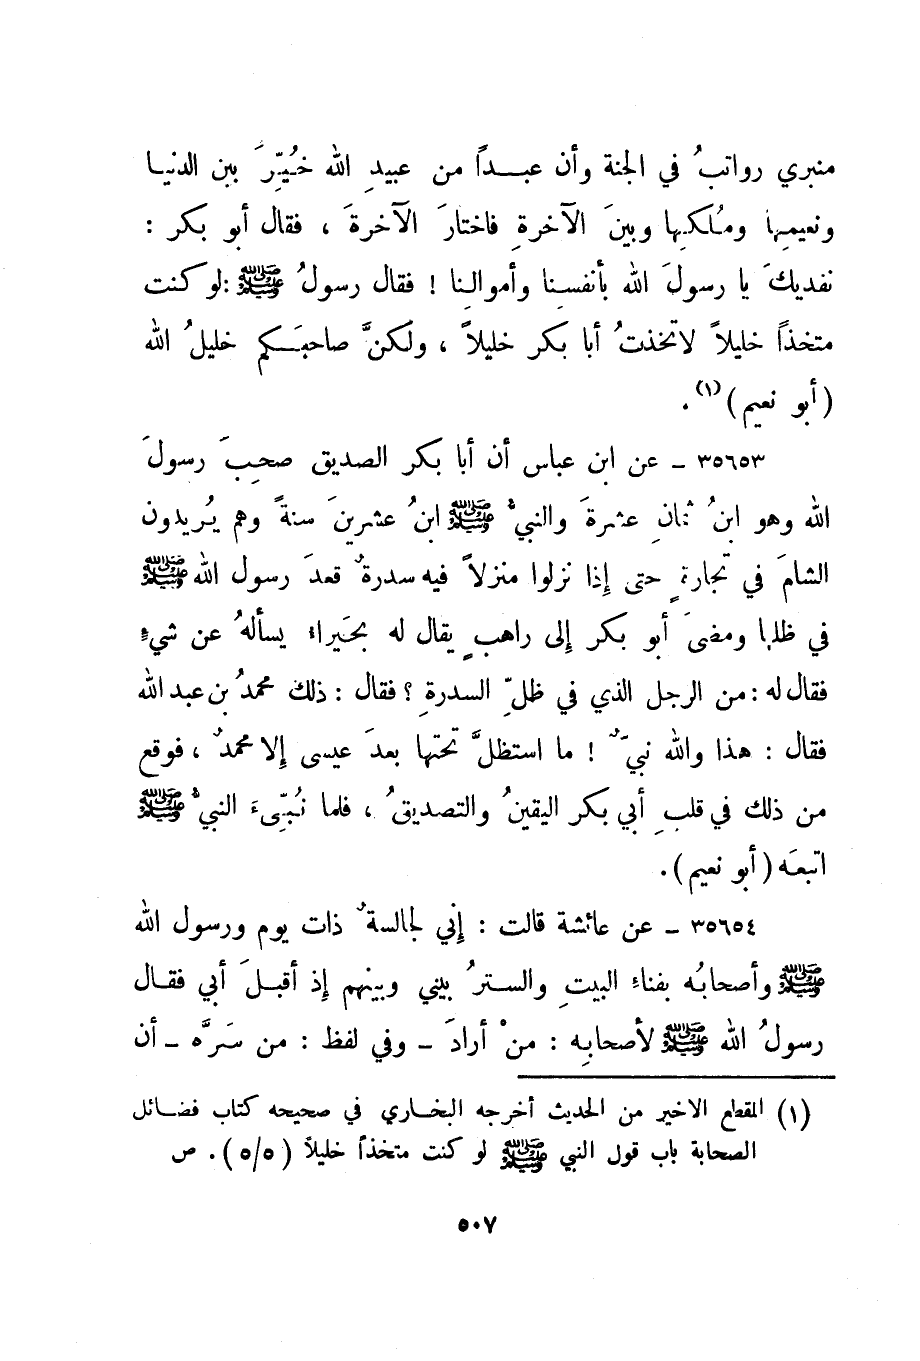 منبري رواتبُ في الجنة وأن عبـــداً من عبيدِ الله خُيِّرَ بين الدنيا
ونعيمِها ومُلكِها وبينَ الآخرةِ فاختارَ الآخرةَ ، فقال أبو بكر :
نفديكَ يا رسولَ الله بأنفسِنا وأموالِنا ! فقال رسولُ ﷺ :لو كنت
متخذاً خليلاً لاتخذتُ أبا بكر خليلاً ، ولكنَّ صاحبَـكم خليلُ الله
(أبو نعيم)(١) .
٣٥٦٥٣ – عن ابن عباس أن أبا بكر الصديق صحبَ رسولَ
الله وهو ابنُ ثمانِ عشرةَ والنبيُّ ﷺ ابنُ عشرينَ سنةً وهم يُريدون
الشامَ في تجارةٍ حتى إذا نزلوا منزلاً فيه سدرةٌ قعدَ رسول الله ﷺ
في ظلها ومضىَ أبو بكر إلى راهبٍ يقال له بَحيراء يسألهُ عن شيءٍ
فقال له : من الرجل الذي في ظلِّ السدرةِ ؟ فقال : ذلك محمدُ بن عبد الله
فقال : هذا والله نبيٌّ ! ما استظلَّ تحتَها بعدَ عيسى إلا محمدٌ ، فوقع
من ذلك في قلبِ أبي بكر اليقينُ والتصديقُ ، فلما نُبِّىءَ النبيُّ ﷺ
اتبعَه (أبو نعيم) .
٣٥٦٥٤ – عن عائشة قالت : إني لجالسةٌ ذات يوم ورسول الله
ﷺ وأصحابُه بفناءِ البيتِ والسترُ بيني وبينهم إذ أقبلَ أبي فقال
رسولُ الله ﷺ لأصحابِه : منْ أرادَ – وفي لفظ : من سَرَّه – أن
(١) المقطع الاخير من الحديث أخرجه البخاري في صحيحه كتاب فضائل
الصحابة باب قول النبي ﷺ لو كنت متخذاً خليلاً (٥/٥) . ص
٥٠٧